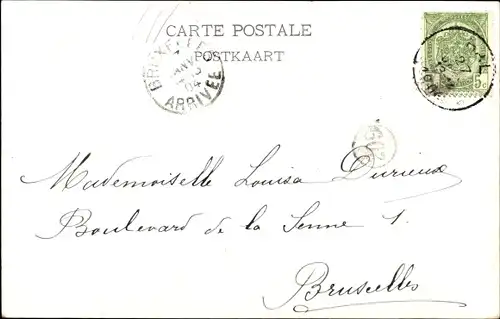 CARTE POSTALE
POSTKAART
BRUXELLES
ARRIVÉE
Mademoiselle Louisa Durieux
Boulevard de la Senne 1.
Bruxelles